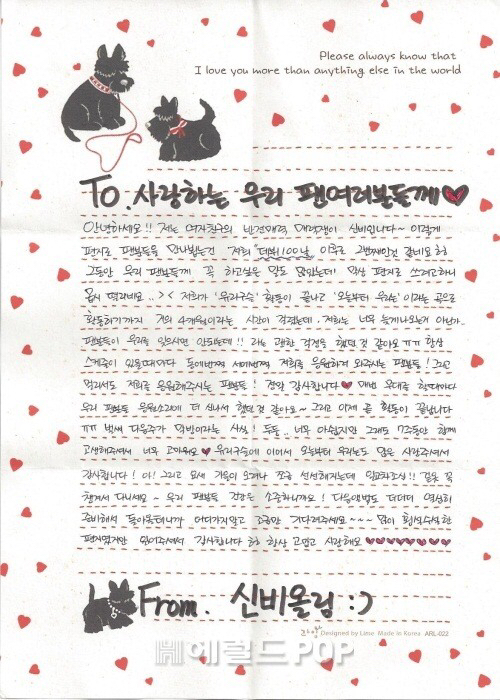 Please always know that
I love you more than anything else in the world
To. 사랑하는 우리 팬여러분들께♥
안녕하세요!! 저는 여자친구의 반전매력 대명쟁이 신비입니다~ 이렇게
편지로 팬분들을 만나뵙는건 저희 데뷔100날 이후로 2번째인것 같네요 헝
그동안 우리 팬분들께 꼭 하고싶은 말도 많았는데 막상 편지로 쓰려고하니
몹시 떨리네요..>< 저희가 '유리구슬' 활동이 끝나고 '오늘부터 우리는'이라는 곡으로
활동하기까지 거의 4개월이라는 시간이 걸렸는데. 저희는 너무 늦게나오는게 아닌가..
팬분들이 우리를 잊으시면 안되는데!! 라는 괜한 걱정을 했던것 같아요 ㅠㅠ 항상
스케줄이 있을때마다 두번째 세번째 저희를 응원하러 와주시는 팬분들! 그리고
멀리서도 저희를 응원해주시는 팬분들! 정말 감사합니다♥ 매번 무대를 할때마다
우리 팬분들 응원소리에 더 신나서 했던것 같아요~ 그리고 이제 곧 활동이 끝납니다
ㅠㅠ 벌써 다음주가 막방이라는 사실! 두둥.. 너무 아쉽지만 그래도 7주동안 함께
고생해주셔서 너무 고마워요♥ 유리구슬에 이어서 오늘부터 우리는도 많은 사랑주셔서
감사합니다! 아! 그리고 요새 가을이 오려나 쪼끔 선선해지는데 감기조심!! 겉옷 꼭
챙겨서 다니세요~ 우리 팬분들 건강은 소중하니까요! 다음앨범도 더더더 열심히
준비해서 돌아올테니까 어디가지말고 조금만 기다려주세요~~~ 많이 횡설수설한
편지였지만 읽어주셔서 감사합니다 헝 항상 고맙고 사랑해요♥♥♥♥♥♥♥♥
From. 신비올림 :)
Designed by Lime Made in Korea ARL-022
헤럴드 POP